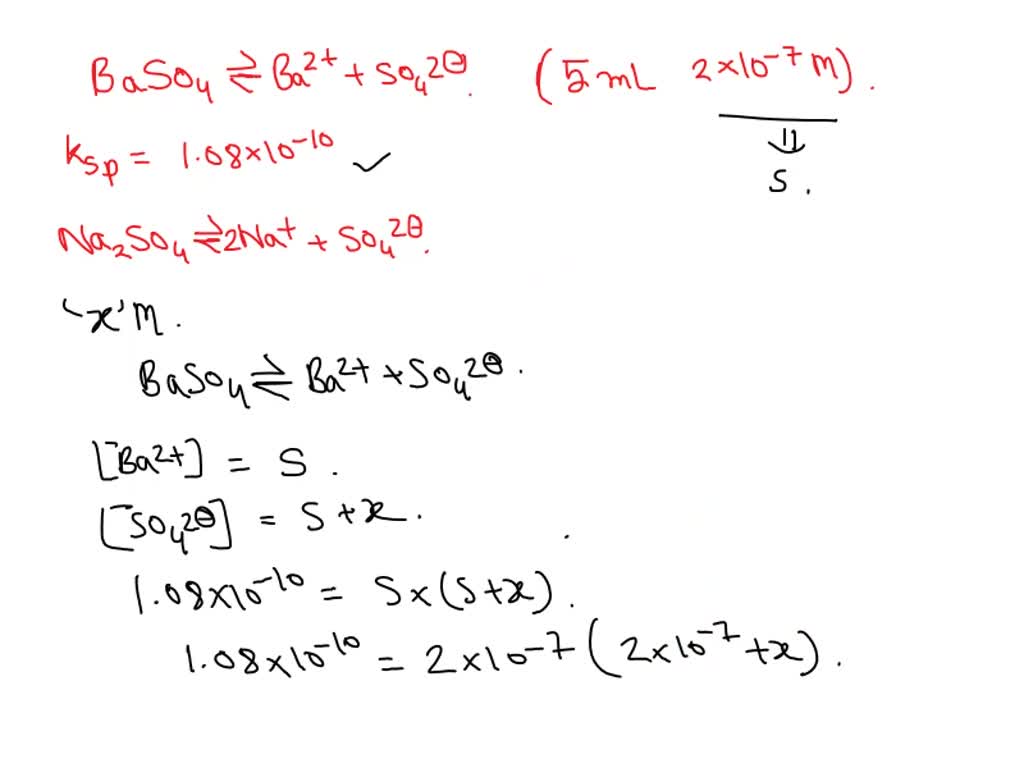 BaSO4 ⇌ Ba2+ + SO42⊖. (5 mL 2×10-7 M).
⇓
Ksp = 1.08×10-10 ✓
S.
Na2SO4 ⇌ 2Na+ + SO42⊖.
'x' M.
BaSO4 ⇌ Ba2+ + SO42⊖.
[Ba2+] = S.
[SO42⊖] = S+x.
1.08×10-10 = S×(S+x).
1.08×10-10 = 2×10-7 (2×10-7 +x).